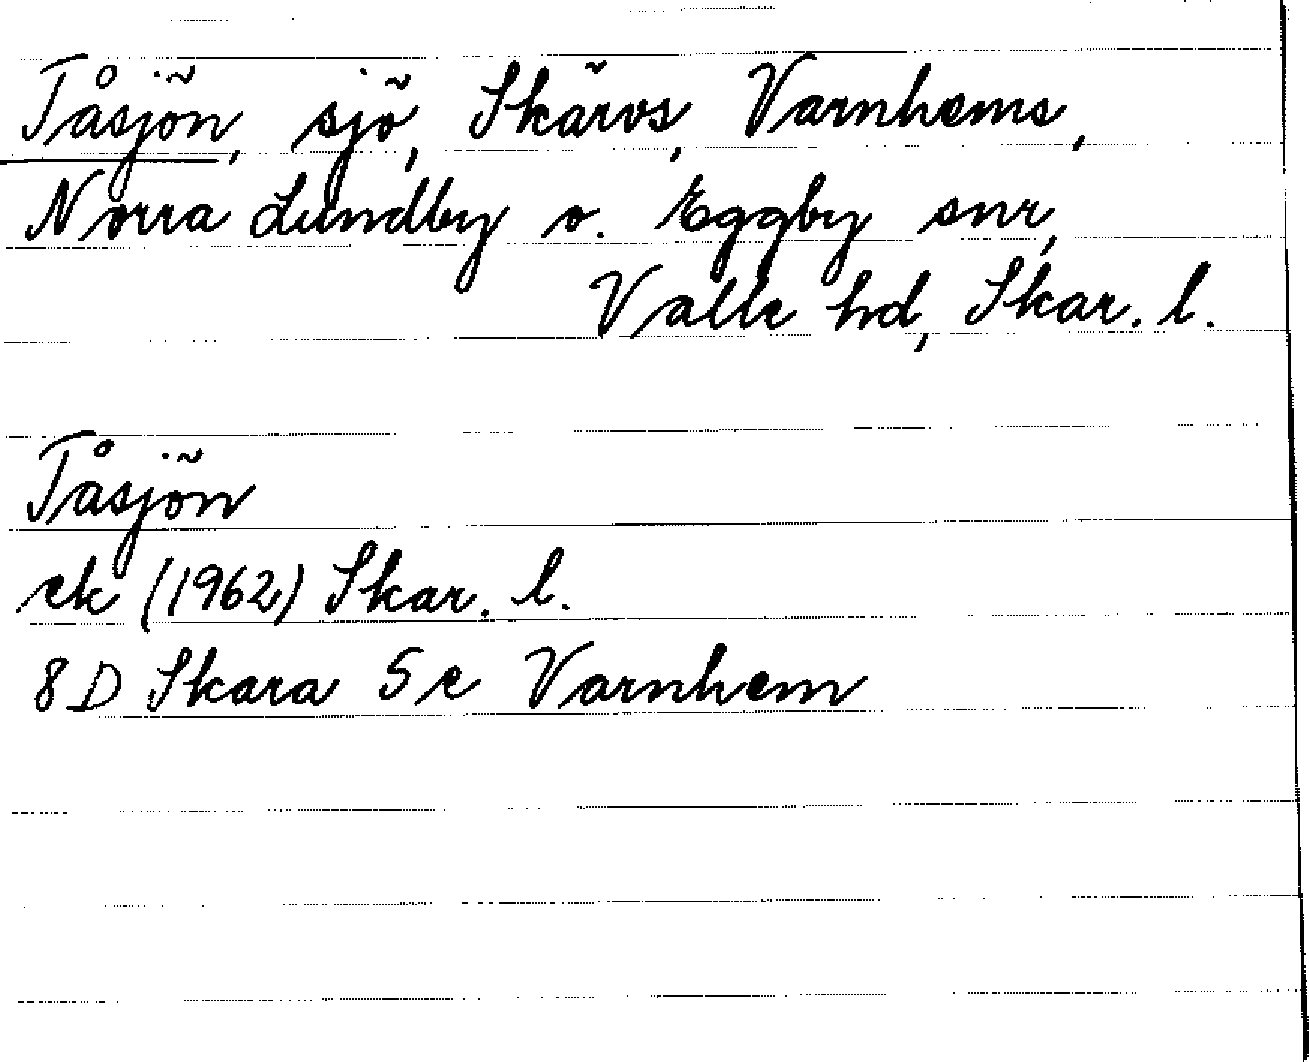 Tåsjön, sjö, Skärvs, Varnhems,
Norra Lundby o. Eggby snr,
Valle hd, Skar. l.
Tåsjön
ek (1962) Skar. l.
8D Skara 5e Varnhem